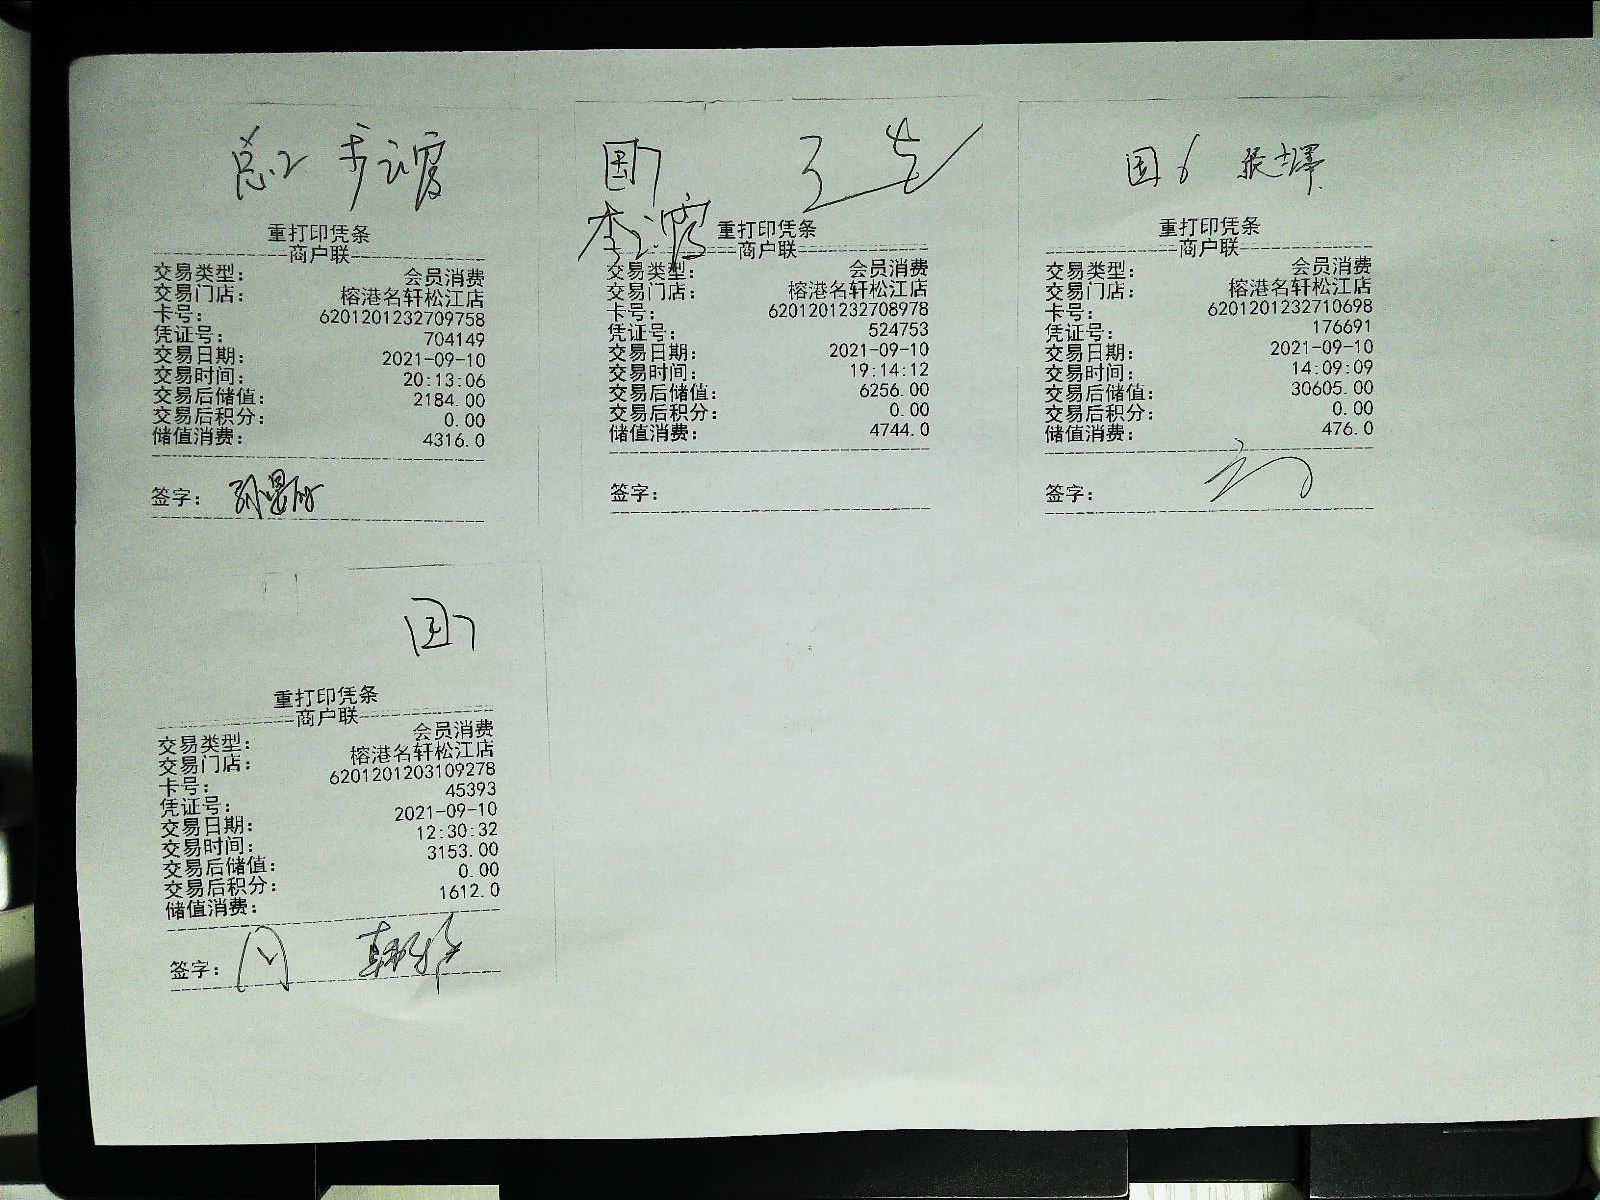 总2
重打印凭条
商户联
交易类型： 会员消费
交易门店： 榕港名轩松江店
卡号： 6201201232709758
凭证号： 704149
交易日期： 2021-09-10
交易时间： 20:13:06
交易后储值： 2184.00
交易后积分： 0.00
储值消费： 4316.0
签字：
国7
重打印凭条
商户联
交易类型： 会员消费
交易门店： 榕港名轩松江店
卡号： 6201201232708978
凭证号： 524753
交易日期： 2021-09-10
交易时间： 19:14:12
交易后储值： 6256.00
交易后积分： 0.00
储值消费： 4744.0
签字：
国6
重打印凭条
商户联
交易类型： 会员消费
交易门店： 榕港名轩松江店
卡号： 6201201232710698
凭证号： 176691
交易日期： 2021-09-10
交易时间： 14:09:09
交易后储值： 30605.00
交易后积分： 0.00
储值消费： 476.0
签字：
国7
重打印凭条
商户联
交易类型： 会员消费
交易门店： 榕港名轩松江店
卡号： 6201201203109278
凭证号： 45393
交易日期： 2021-09-10
交易时间： 12:30:32
交易后储值： 3153.00
交易后积分： 0.00
储值消费： 1612.0
签字：